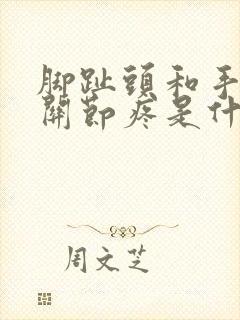 脚趾頭和手
關節疼是什
周文芝